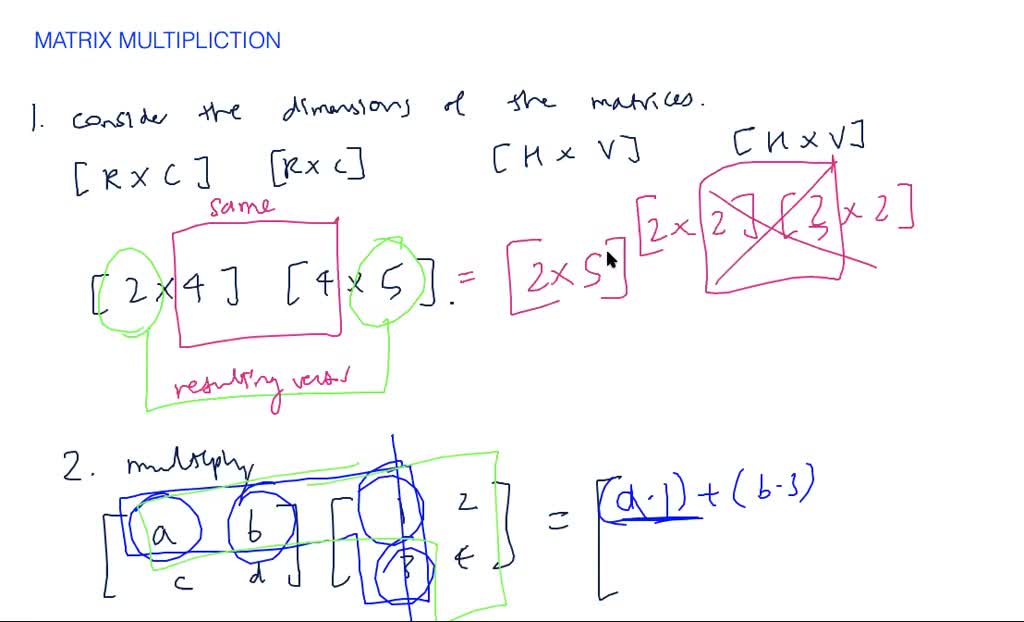 MATRIX MULTIPLICTION
1. consider the dimensions of the matrices.
[R X C] [R X C] [H X V] [H X V]
same
[2 X 4] [4 X 5]. = [2 X 5] [2 X 2] [3 X 2]
resulting
2. multiply
[a b] [1 2] = [(a·1) + (b·3)
c d 3 4